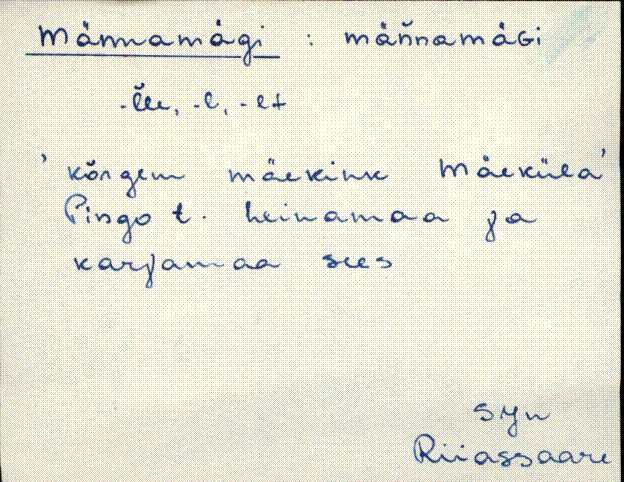 Männamägi : mäñnamäGi
-l̆le, -l, -lt
' kõrgem mäekink Mäeküla'
Pingo t. heinamaa ja
karjamaa sees
syn
Riiassaare